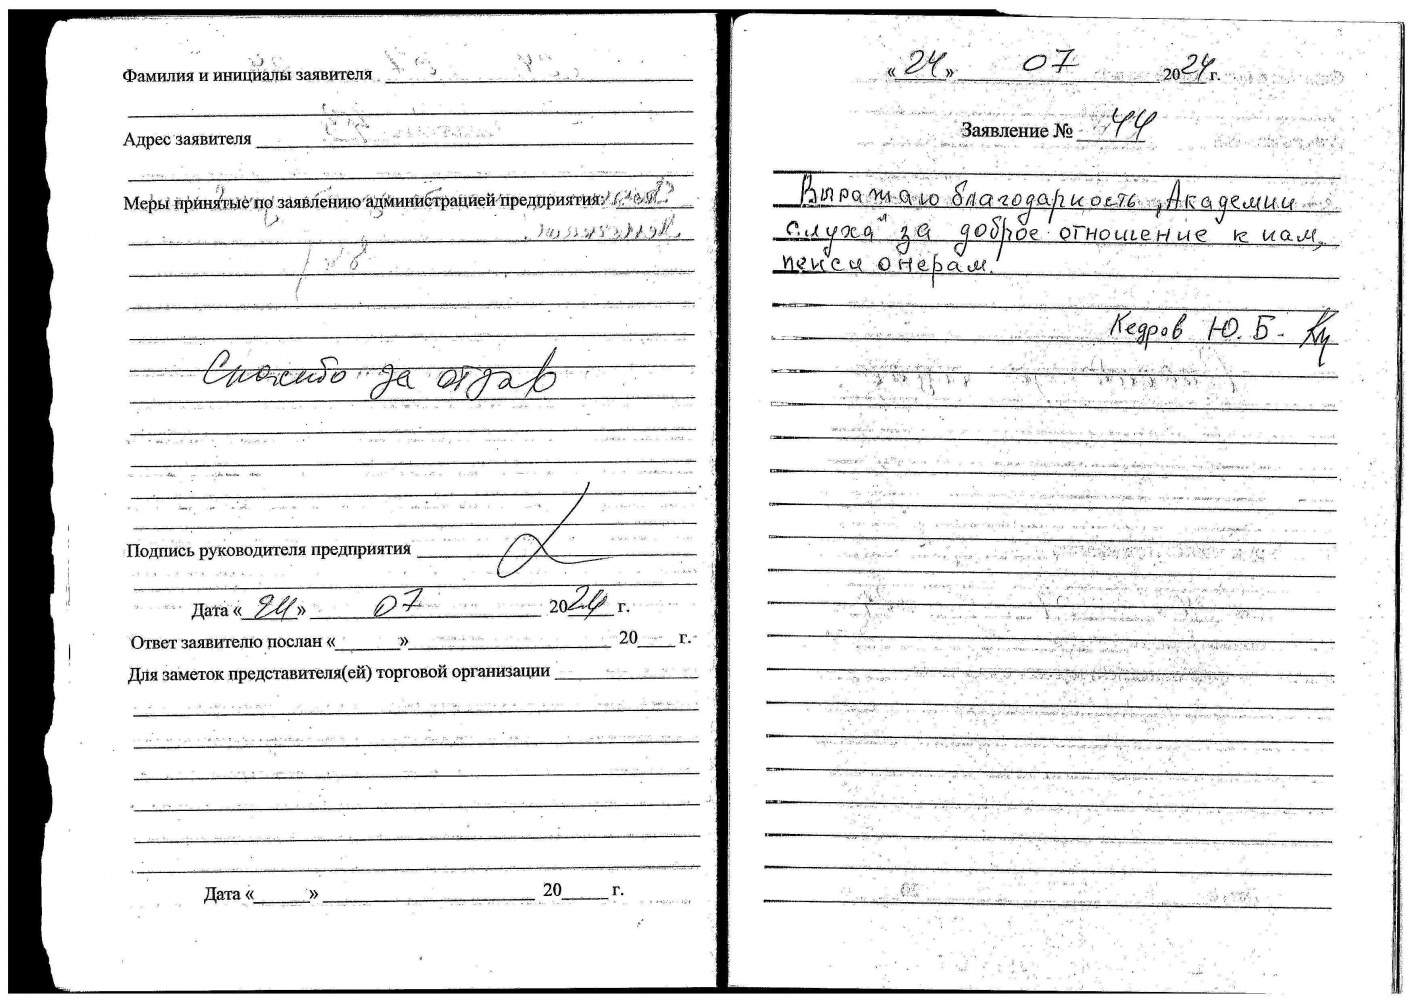 Фамилия и инициалы заявителя
Адрес заявителя
Меры принятые по заявлению администрацией предприятия:
Спасибо за отзыв
Подпись руководителя предприятия
Дата «24» 07 2024 г.
Ответ заявителю послан «______» 20____ г.
Для заметок представителя(ей) торговой организации
Дата «______» 20_____ г.
«24» 07 2024 г.
Заявление № 44
Выражаю благодарность „Академии
слуха" за доброе отношение к нам,
пенсионерам.
Кедров Ю.Б.